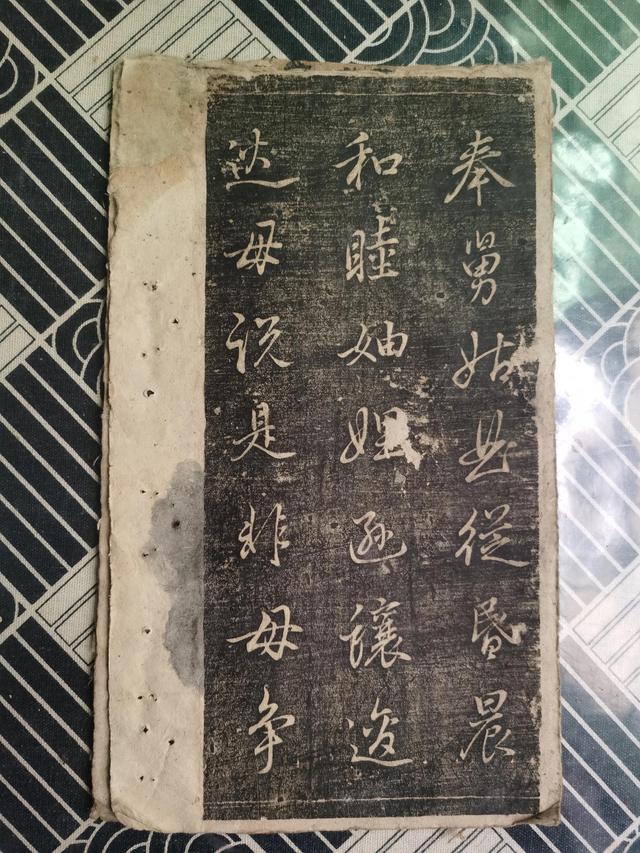 奉舅姑曲從昏晨
和睦妯娌遜讓逡
巡毋說是非毋争